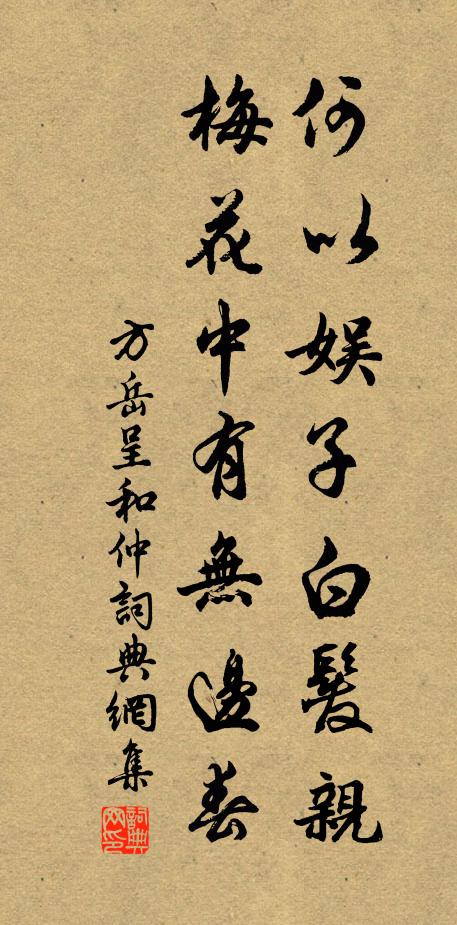 何以娛子白髮親
梅花中有無邊春
方岳呈和仲詞典網集
詞典网印